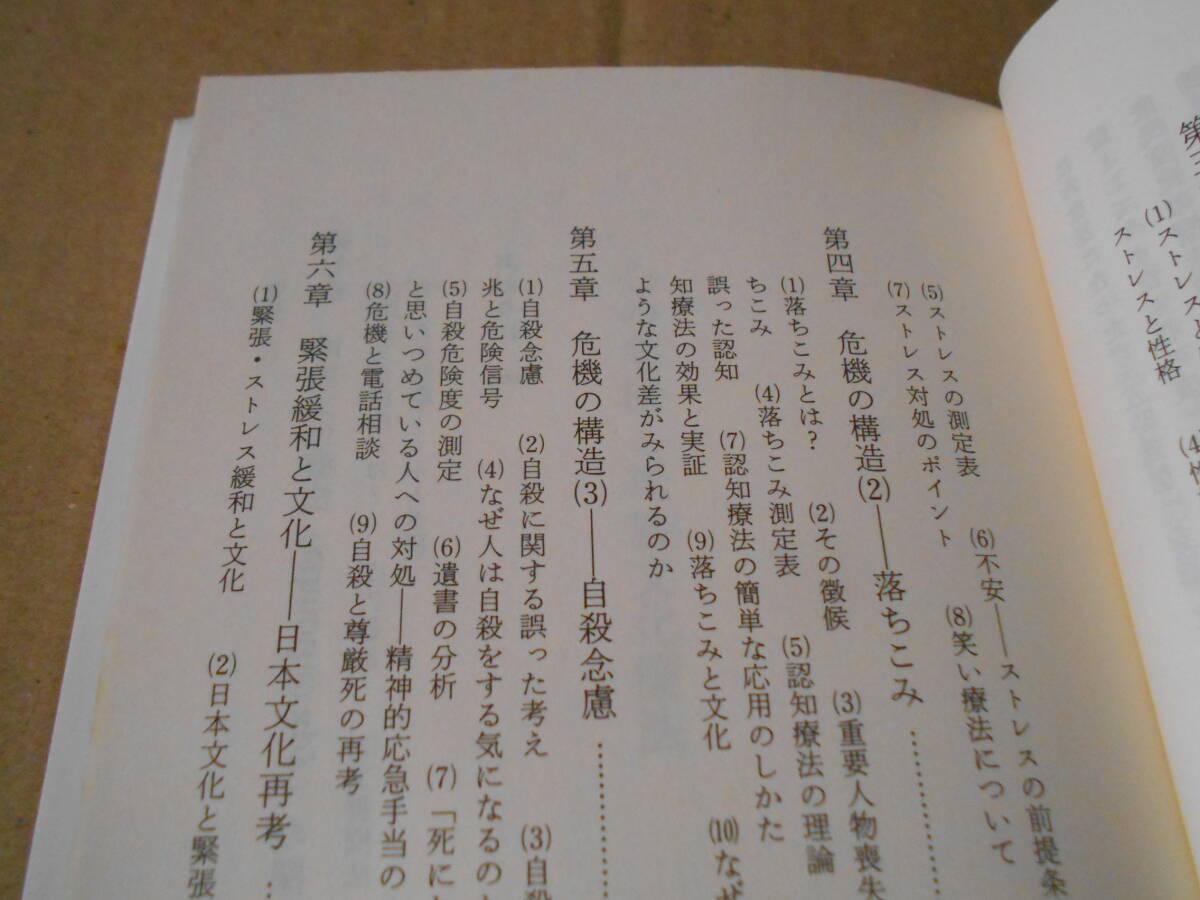 (1)ストレスと
ストレスと性格
(5)ストレスの測定表　(6)不安――ストレスの前提条
(7)ストレス対処のポイント　(8)笑い療法について
第四章　危機の構造(2)――落ちこみ
(1)落ちこみとは?　(2)その徴候　(3)重要人物喪失
ちこみ　(4)落ちこみ測定表　(5)認知療法の理論
誤った認知　(7)認知療法の簡単な応用のしかた
知療法の効果と実証　(9)落ちこみと文化　(10)なぜ
ような文化差がみられるのか
第五章　危機の構造(3)――自殺念慮
(1)自殺念慮　(2)自殺に関する誤った考え　(3)自
兆と危険信号　(4)なぜ人は自殺をする気になるの
(5)自殺危険度の測定　(6)遺書の分析　(7)「死に
と思いつめている人への対処――精神的応急手当の
(8)危機と電話相談　(9)自殺と尊厳死の再考
第六章　緊張緩和と文化――日本文化再考
(1)緊張・ストレス緩和と文化　(2)日本文化と緊張